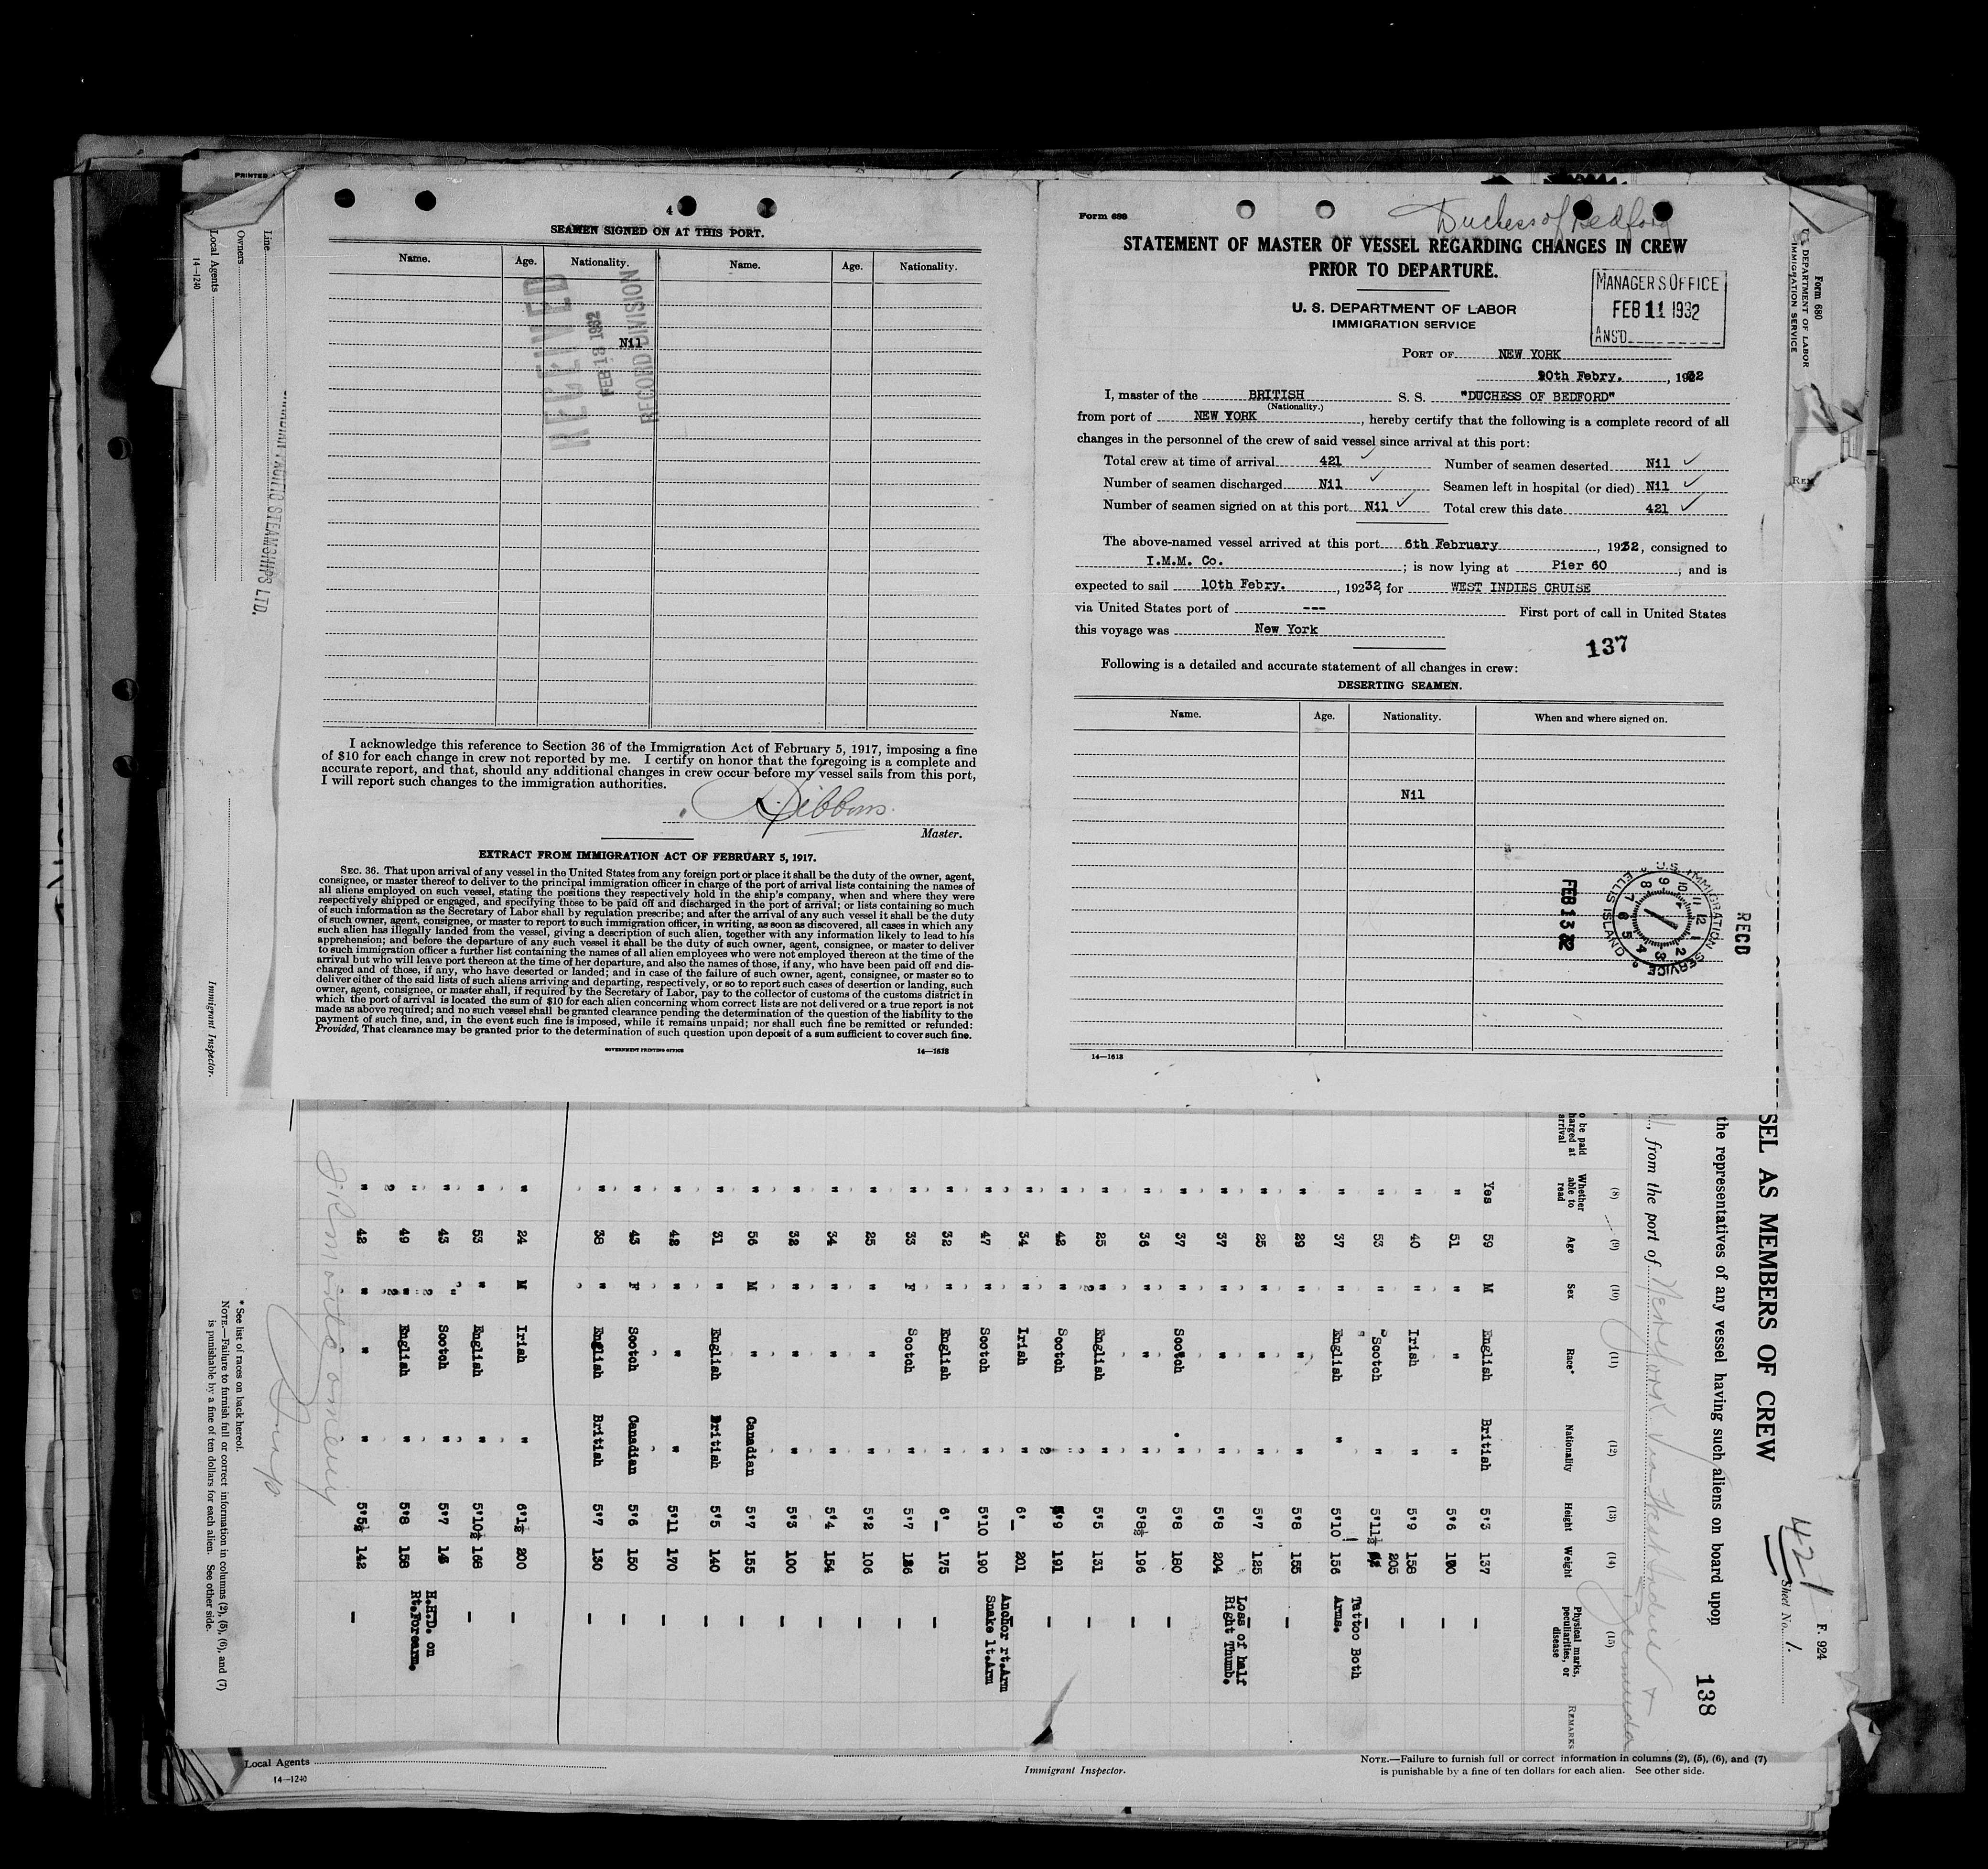 PRINTED
4
SEAMEN SIGNED ON AT THIS PORT.
Name. Age. Nationality. Name. Age. Nationality.
RECEIVED
FEB 13 1932
RECORD DIVISION
Nil
I acknowledge this reference to Section 36 of the Immigration Act of February 5, 1917, imposing a fine
of $10 for each change in crew not reported by me. I certify on honor that the foregoing is a complete and
accurate report, and that, should any additional changes in crew occur before my vessel sails from this port,
I will report such changes to the immigration authorities.
Gibbons.
Master.
EXTRACT FROM IMMIGRATION ACT OF FEBRUARY 5, 1917.
SEC. 36. That upon arrival of any vessel in the United States from any foreign port or place it shall be the duty of the owner, agent,
consignee, or master thereof to deliver to the principal immigration officer in charge of the port of arrival lists containing the names of
all aliens employed on such vessel, stating the positions they respectively hold in the ship's company, when and where they were
respectively shipped or engaged, and specifying those to be paid off and discharged in the port of arrival; or lists containing so much
of such information as the Secretary of Labor shall by regulation prescribe; and after the arrival of any such vessel it shall be the duty
of such owner, agent, consignee, or master to report to such immigration officer, in writing, as soon as discovered, all cases in which any
such alien has illegally landed from the vessel, giving a description of such alien, together with any information likely to lead to his
apprehension; and before the departure of any such vessel it shall be the duty of such owner, agent, consignee, or master to deliver
to such immigration officer a further list containing the names of all alien employees who were not employed thereon at the time of the
arrival but who will leave port thereon at the time of her departure, and also the names of those, if any, who have been paid off and dis-
charged and of those, if any, who have deserted or landed; and in case of the failure of such owner, agent, consignee, or master so to
deliver either of the said lists of such aliens arriving and departing, respectively, or so to report such cases of desertion or landing, such
owner, agent, consignee, or master shall, if required by the Secretary of Labor, pay to the collector of customs of the customs district in
which the port of arrival is located the sum of $10 for each alien concerning whom correct lists are not delivered or a true report is not
made as above required; and no such vessel shall be granted clearance pending the determination of the question of the liability to the
payment of such fine, and, in the event such fine is imposed, while it remains unpaid; nor shall such fine be remitted or refunded:
Provided, That clearance may be granted prior to the determination of such question upon deposit of a sum sufficient to cover such fine.
GOVERNMENT PRINTING OFFICE 14—1618
Form 689
Duchess of Bedford
STATEMENT OF MASTER OF VESSEL REGARDING CHANGES IN CREW
PRIOR TO DEPARTURE.
U. S. DEPARTMENT OF LABOR
IMMIGRATION SERVICE
MANAGERS OFFICE
FEB 11 1932
ANSD
PORT OF NEW YORK
10th Febry., 1932
I, master of the BRITISH S. S. "DUCHESS OF BEDFORD"
(Nationality.)
from port of NEW YORK, hereby certify that the following is a complete record of all
changes in the personnel of the crew of said vessel since arrival at this port:
Total crew at time of arrival 421 ✓ Number of seamen deserted Nil ✓
Number of seamen discharged Nil ✓ Seamen left in hospital (or died) Nil ✓
Number of seamen signed on at this port Nil ✓ Total crew this date 421 ✓
The above-named vessel arrived at this port 6th February, 1932, consigned to
I.M.M. Co.; is now lying at Pier 60, and is
expected to sail 10th Febry., 19232, for WEST INDIES CRUISE
via United States port of --- First port of call in United States
this voyage was New York
137
Following is a detailed and accurate statement of all changes in crew:
DESERTING SEAMEN.
Name. Age. Nationality. When and where signed on.
Nil
U.S. IMMIGRATION SERVICE
ELLIS ISLAND
FEB 13 32
RECD
14—1618
Form 680
U. S. DEPARTMENT OF LABOR
IMMIGRATION SERVICE
Line
Owners
Local Agents
14—1240
CANADIAN PACIFIC STEAMSHIPS LTD.
Immigrant Inspector.
421
F. 924
Sheet No. 1.
138
SEL AS MEMBERS OF CREW
the representatives of any vessel having such aliens on board upon
, from the port of New York via West Indies + Bermuda
(8) (9) (10) (11) (12) (13) (14) (15)
o be paid harged at arrival Whether able to read Age Sex Race* Nationality Height Weight Physical marks, peculiarities, or disease REMARKS
Yes 59 M English British 5'3 137 —
" 51 " " " 5'6 —
" 40 " Irish " 5'9 158 —
" 53 " Scotch " 5'11½ 205 —
" 37 " English " 5'10 156 Tattoo Both Arms.
" 29 " " " 5'8 155 —
" 25 " " " 5'7 125 —
" 37 " " " 5'8 204 Loss of half Right Thumb.
" 37 " Scotch " 5'8 180 —
" 36 " " " 5'8½ 196 —
" 25 " English " 5'5 131 —
" 42 " Scotch " 5'9 191 —
" 34 " Irish " 6'— 201 Anchor rt.Arm
" 47 " Scotch " 5'10 190 Snake lt.Arm
" 32 " English " 6'— 175 —
" 33 F Scotch " 5'7 126 —
" 25 " " " 5'2 106 —
" 34 " " " 5'4 154 —
" 32 " " " 5'3 100 —
" 56 M " Canadian 5'7 155 —
" 31 " English British 5'5 140 —
" 42 " " " 5'11 170 —
" 43 F Scotch Canadian 5'6 150 —
" 38 " English British 5'7 130 —
" 24 M Irish " 6'1½ 200 —
" 53 " English " 5'10½ 168 —
" 43 " Scotch " 5'7 H.H.D. on
" 49 " English " 5'8 158 Rt.Forearm.
" 42 " " " 5'5½ 142 —
* See list of races on back hereof.
NOTE.—Failure to furnish full or correct information in columns (2), (5), (6), and (7)
is punishable by a fine of ten dollars for each alien. See other side.
Local Agents
14—1240
Immigrant Inspector.
NOTE.—Failure to furnish full or correct information in columns (2), (5), (6), and (7)
is punishable by a fine of ten dollars for each alien. See other side.